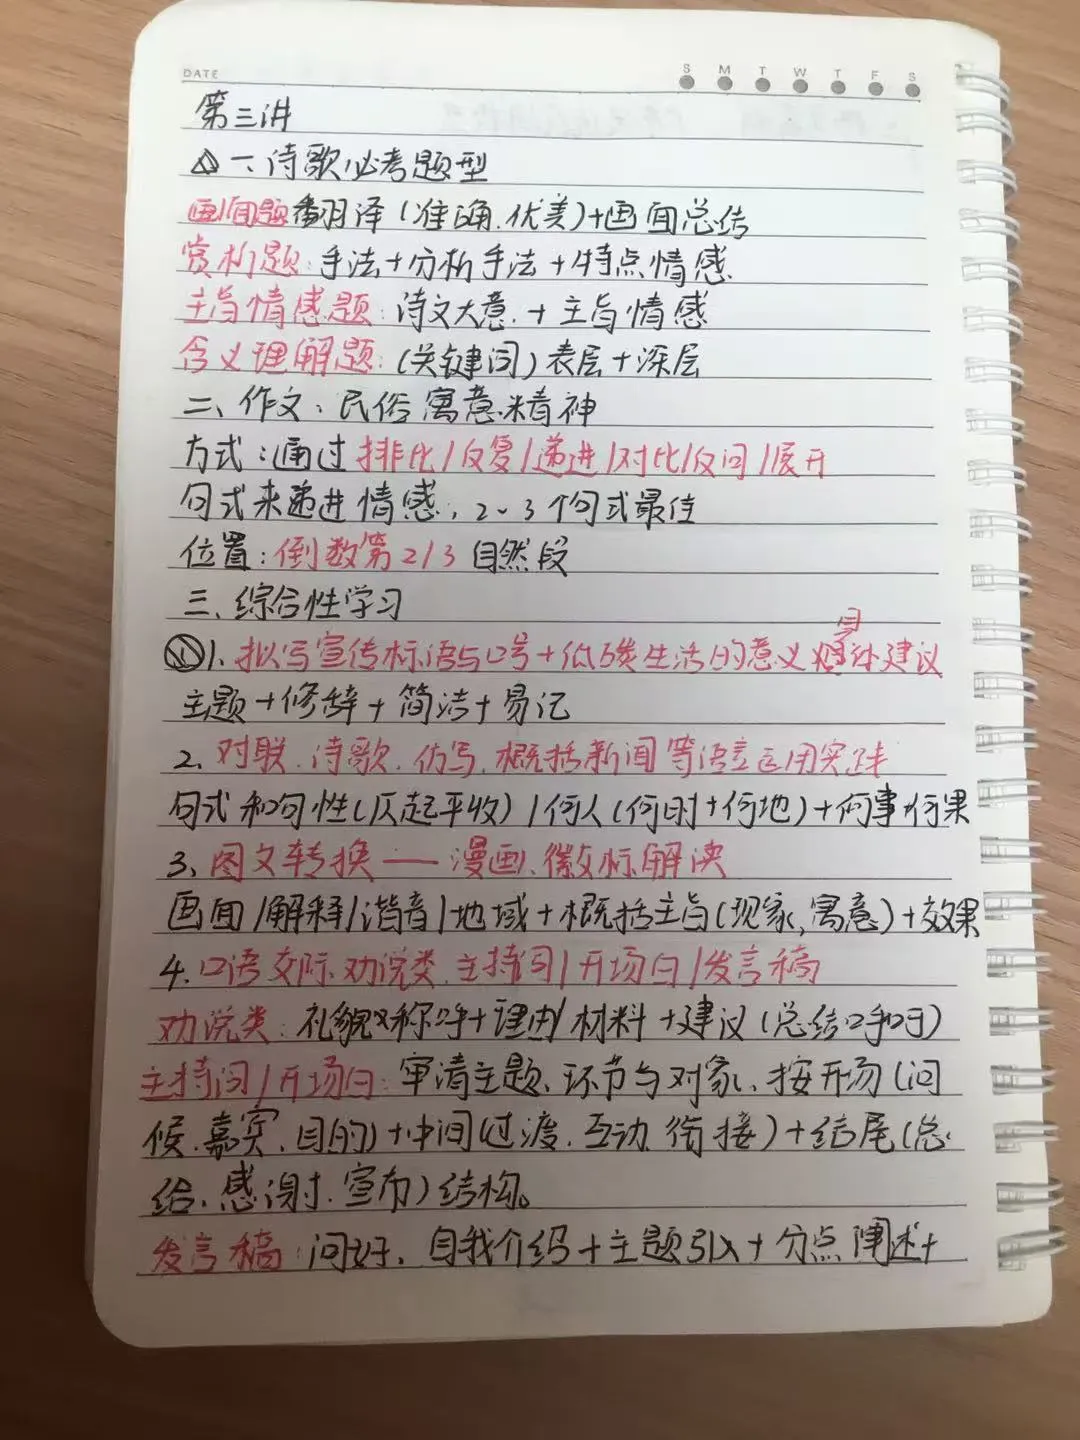 DATE
S M T W T F S
第三讲
一、诗歌必考题型
画面题 翻译(准确、优美)+画面总结
赏析题:手法+分析手法+特点情感
主旨情感题:诗文大意+主旨情感
含义理解题:(关键词)表层+深层
二、作文:民俗寓意精神
方式:通过排比/反复/递进/对比/反问/展开
句式来递进情感,2-3个句式最佳
位置:倒数第2/3自然段
三、综合性学习
1.拟写宣传标语与口号+低碳生活的意义 具体建议
主题+修辞+简洁+易记
2、对联、诗歌、仿写、概括新闻等语言运用实践
句式和句性(仄起平收)/何人(何时+何地)+何事+何果
3、图文转换——漫画、徽标解读
画面/解释/谐音/地域+概括主旨(现象,寓意)+效果
4.口语交际、劝说类、主持词/开场白/发言稿
劝说类:礼貌称呼+理由/材料+建议(总结呼吁)
主持词/开场白:审清主题、环节与对象、按开场(问
候、嘉宾、目的)+中间(过渡、互动、衔接)+结尾(总
结、感谢、宣布)结构。
发言稿:问好、自我介绍+主题引入+分点阐述+